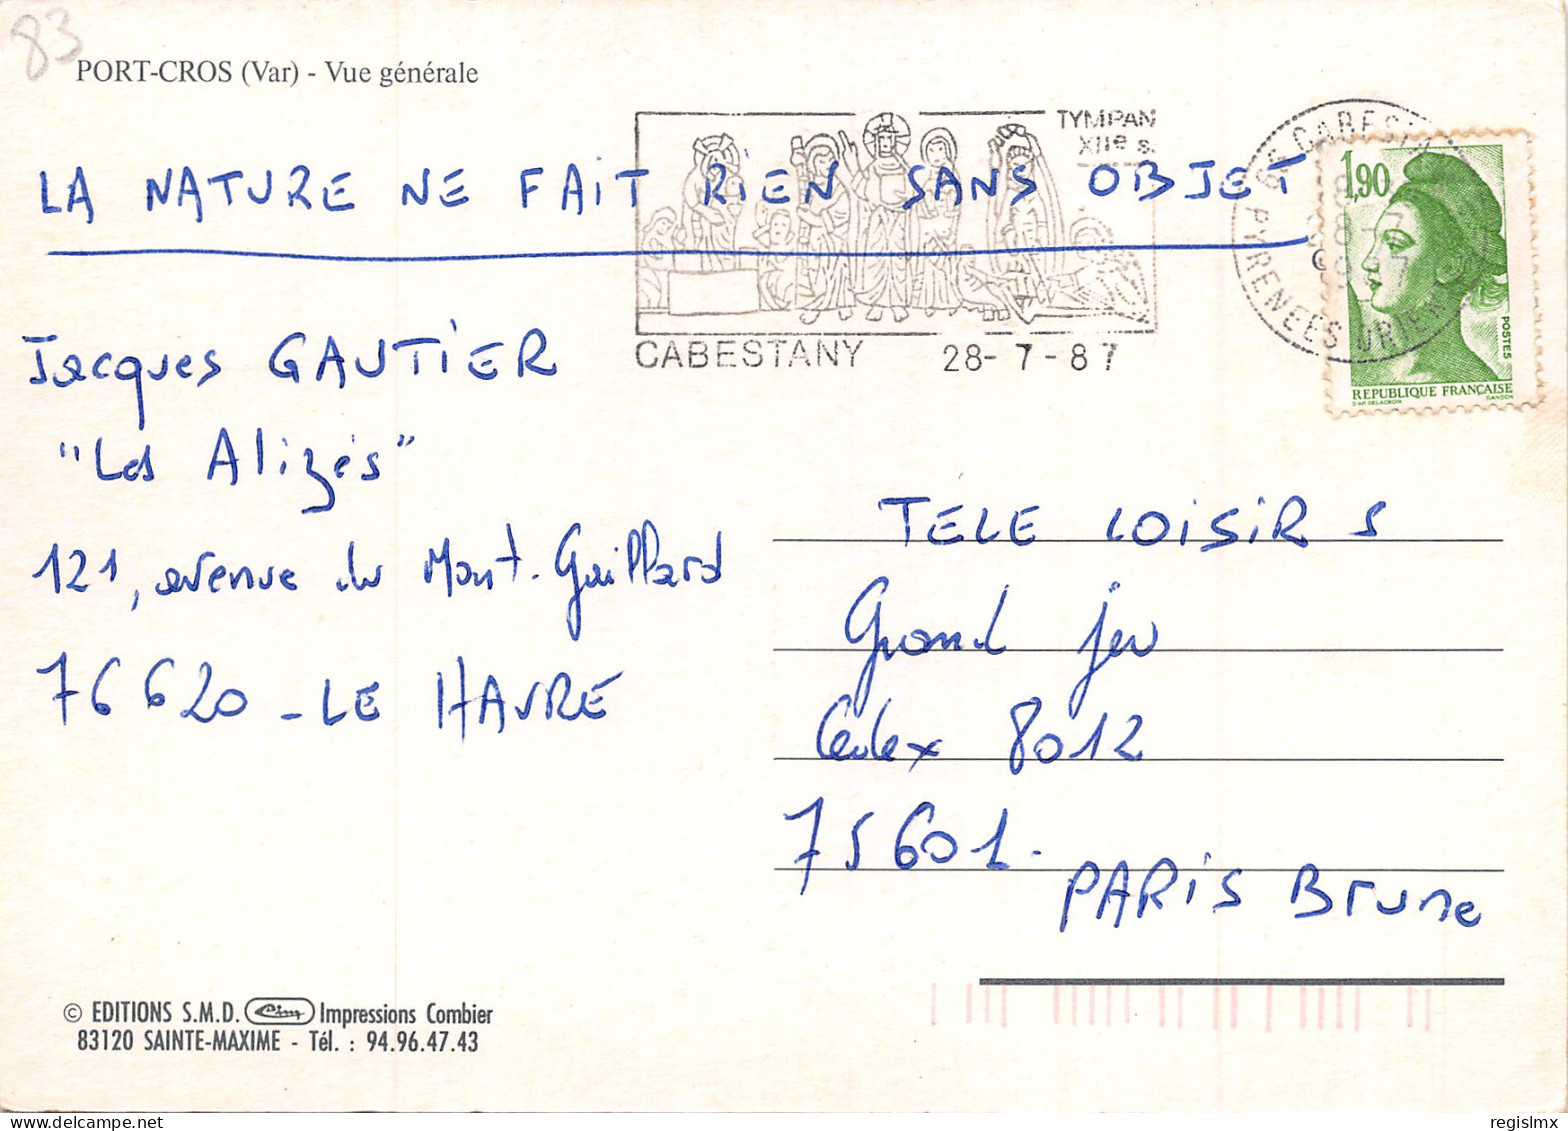 83
PORT-CROS (Var) - Vue générale
TYMPAN
XIIe s.
CABESTANY 28-7-87
66 CABESTANY
PYRENEES ORIENT
1,90
POSTES
REPUBLIQUE FRANÇAISE
D'AP. DELACROIX GANDON
LA NATURE NE FAIT RIEN SANS OBJET
Jacques GAUTIER
"Les Alizés"
121, avenue du Mont-Gaillard
76620 - LE HAVRE
TELE LOISIRS
Grand jeu
Cedex 8012
75601.
PARIS Brune
© EDITIONS S.M.D. Cim Impressions Combier
83120 SAINTE-MAXIME - Tél. : 94.96.47.43
www.delcampe.net
regislmx